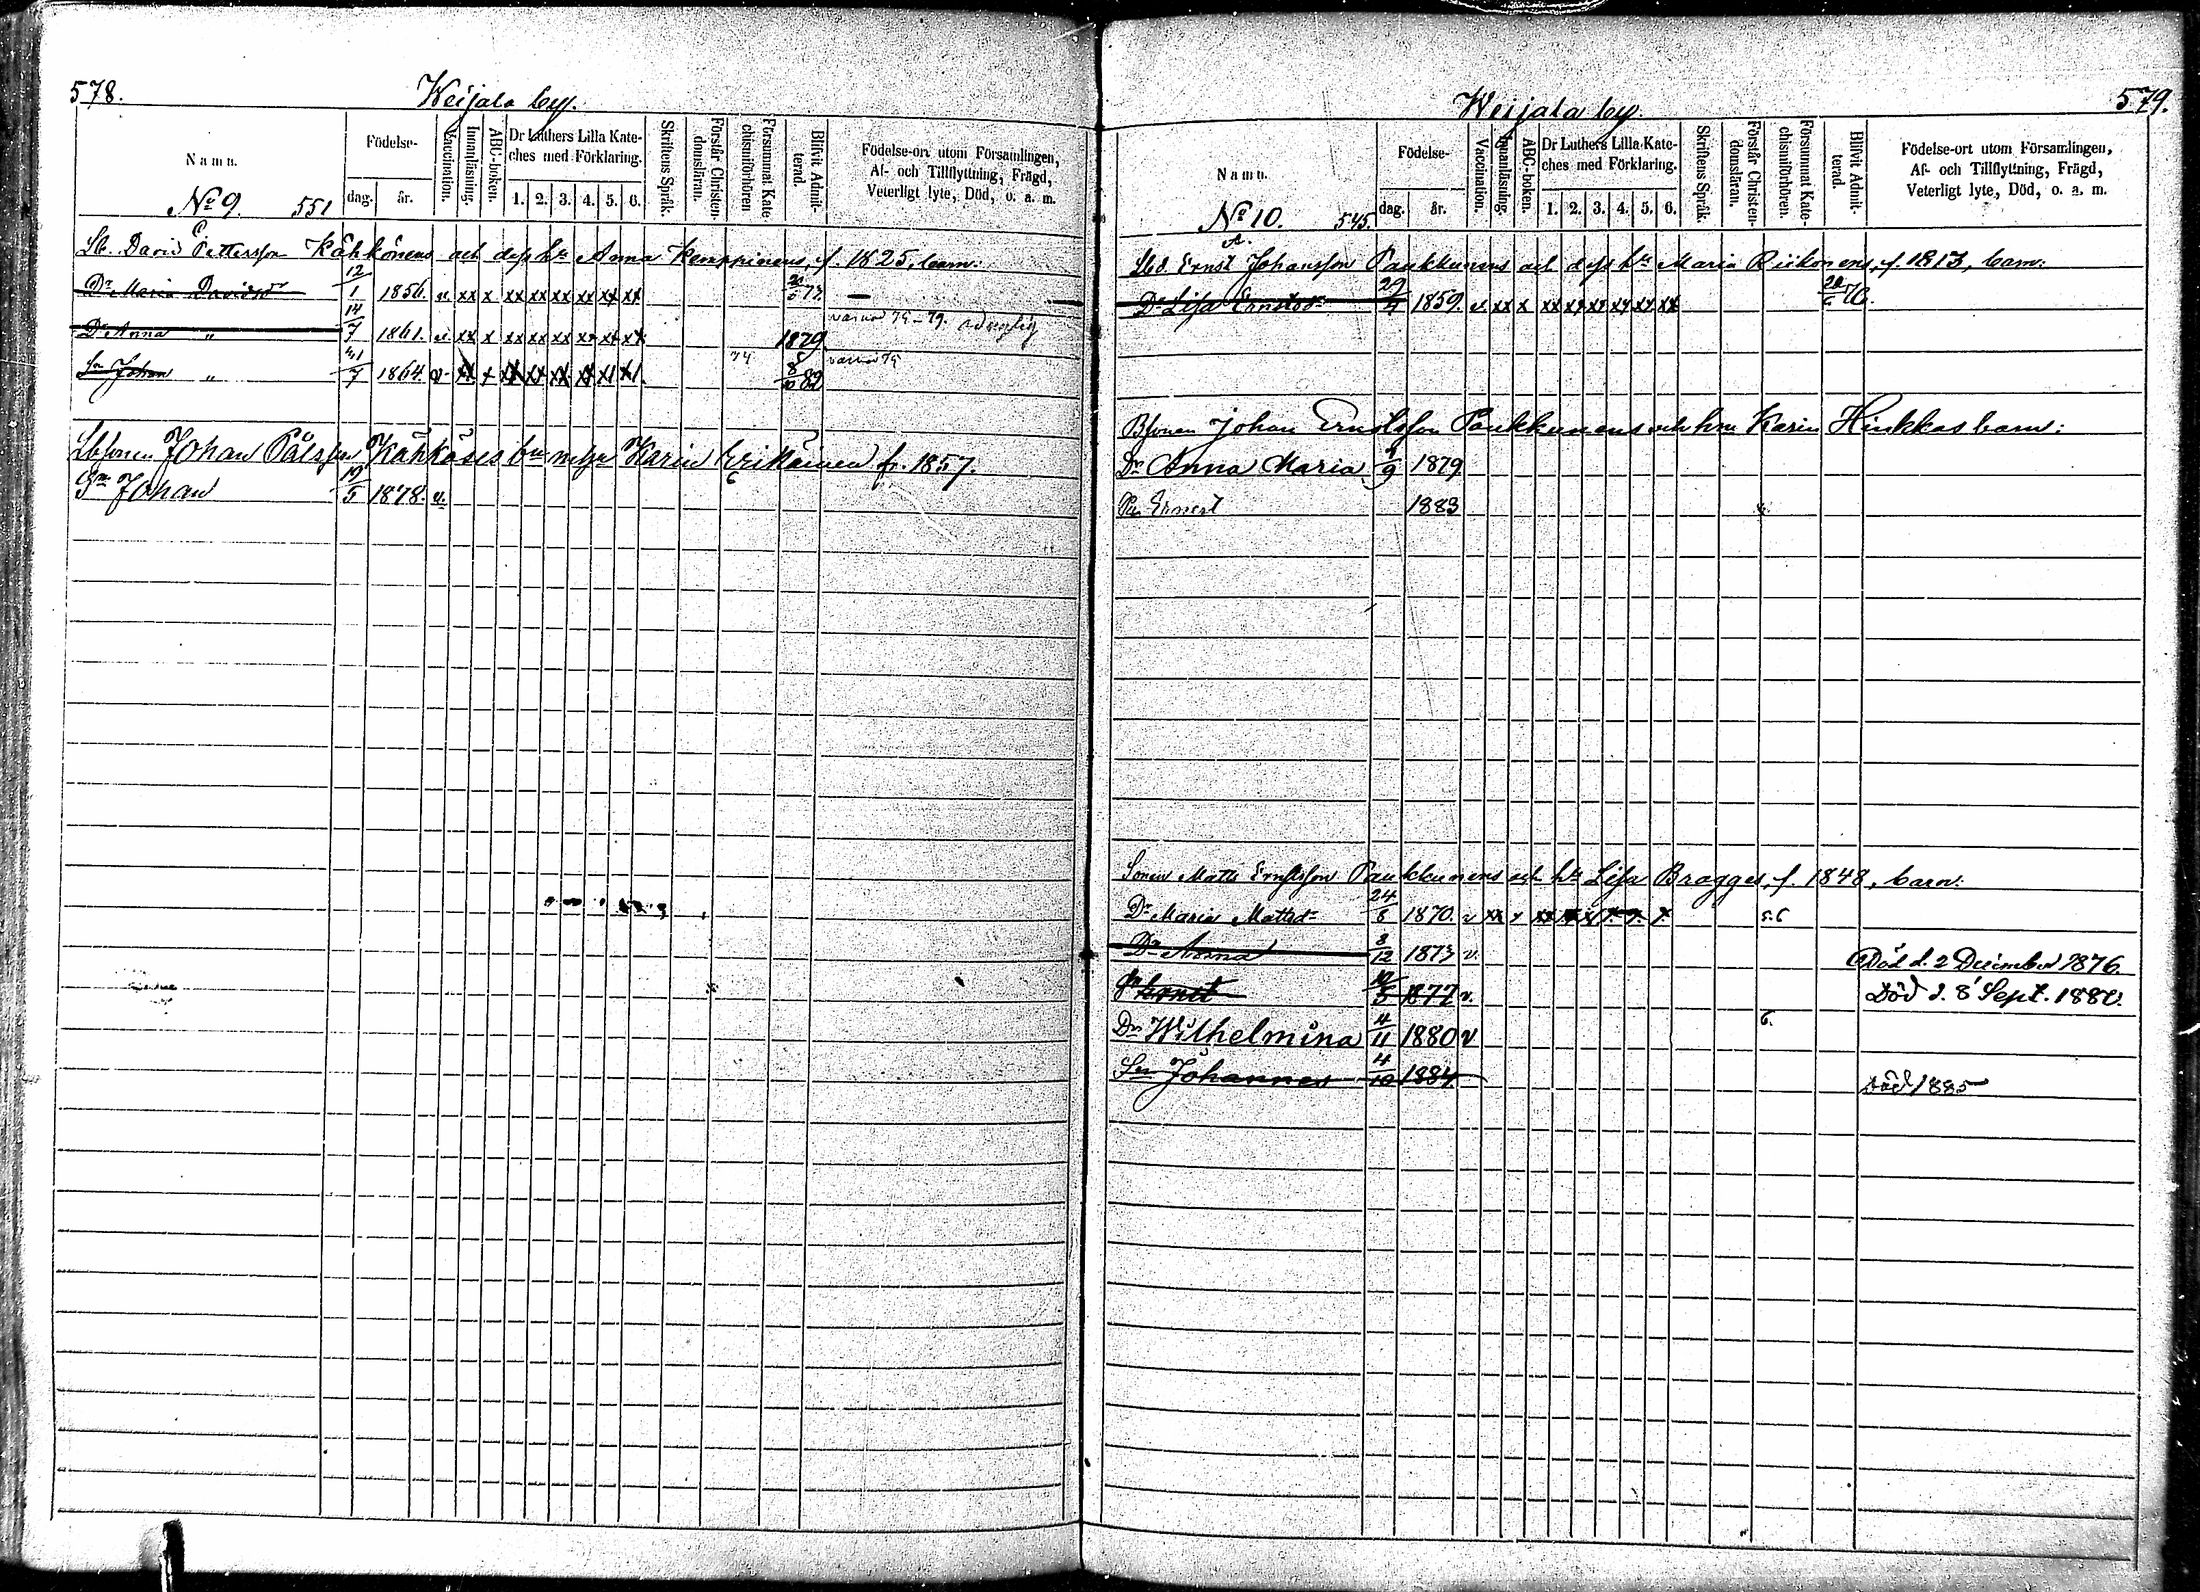 578.
Weijala by.
Namn.
Födelse-
dag.
år.
Vaccination.
Innanläsning.
ABC-boken.
Dr Luthers Lilla Kate-
ches med Förklaring.
1. 2. 3. 4. 5. 6.
Skriftens Språk.
Förstår Christen-
domsläran.
Försummat Kate-
chismiförhören
Blifvit Admit-
terad.
Födelse-ort utom Församlingen,
Af- och Tillflyttning, Frägd,
Veterligt lyte, Död, o. a. m.
No 9. 551
Lb. David Pettersson Kähkönens och dess hu Anna Kemppinens, f. 1825, barn:
Dr Maria Davidsdr 12/1 1856. v. xx x xx xx xx xx xx xx
Dr Anna " 14/7 1861. v. xx x xx xx xx xx xx xx 1879
Sn Johan " 31/7 1864. v. xx x xx xx xx xx xx xx 74 8/82
Johan Pålsson Kähköses Karin Erikäinen f. 1857.
Sn Johan 19/5 1878. v.
579.
Weijala by.
Namn.
Födelse-
dag.
år.
Vaccination.
Innanläsning.
ABC-boken.
Dr Luthers Lilla Kate-
ches med Förklaring.
1. 2. 3. 4. 5. 6.
Skriftens Språk.
Förstår Christen-
domsläran.
Försummat Kate-
chismiförhören.
Blifvit Admit-
terad.
Födelse-ort utom Församlingen,
Af- och Tillflyttning, Frägd,
Veterligt lyte, Död, o. a. m.
No 10. 545.
Ernst Johansson Paukkunens och dess hu Maria Riikonens, f. 1813, barn:
Dr Lisa Ernstsdr 29/4 1859. v. xx x xx xx xx xx xx xx
Bsonen Johan Ernstsson Paukkunens och hu Karin Hinkkas barn:
Dr Anna Maria 1879
Sn Ernest 1883
Sonen Matts Ernstsson Paukkunens och hu Lisa Bragges, f. 1848, barn:
Dr Maria Mattsdr 24/8 1870. v
Dr Anna 8/12 1873 v. Död d. 2 December 1876.
Sn Ernst 1877 v. Död d. 8 Sept. 1880.
Dr Wilhelmina 4/11 1880 v 6.
Sn Johannes 4/10 1884 Död 1885